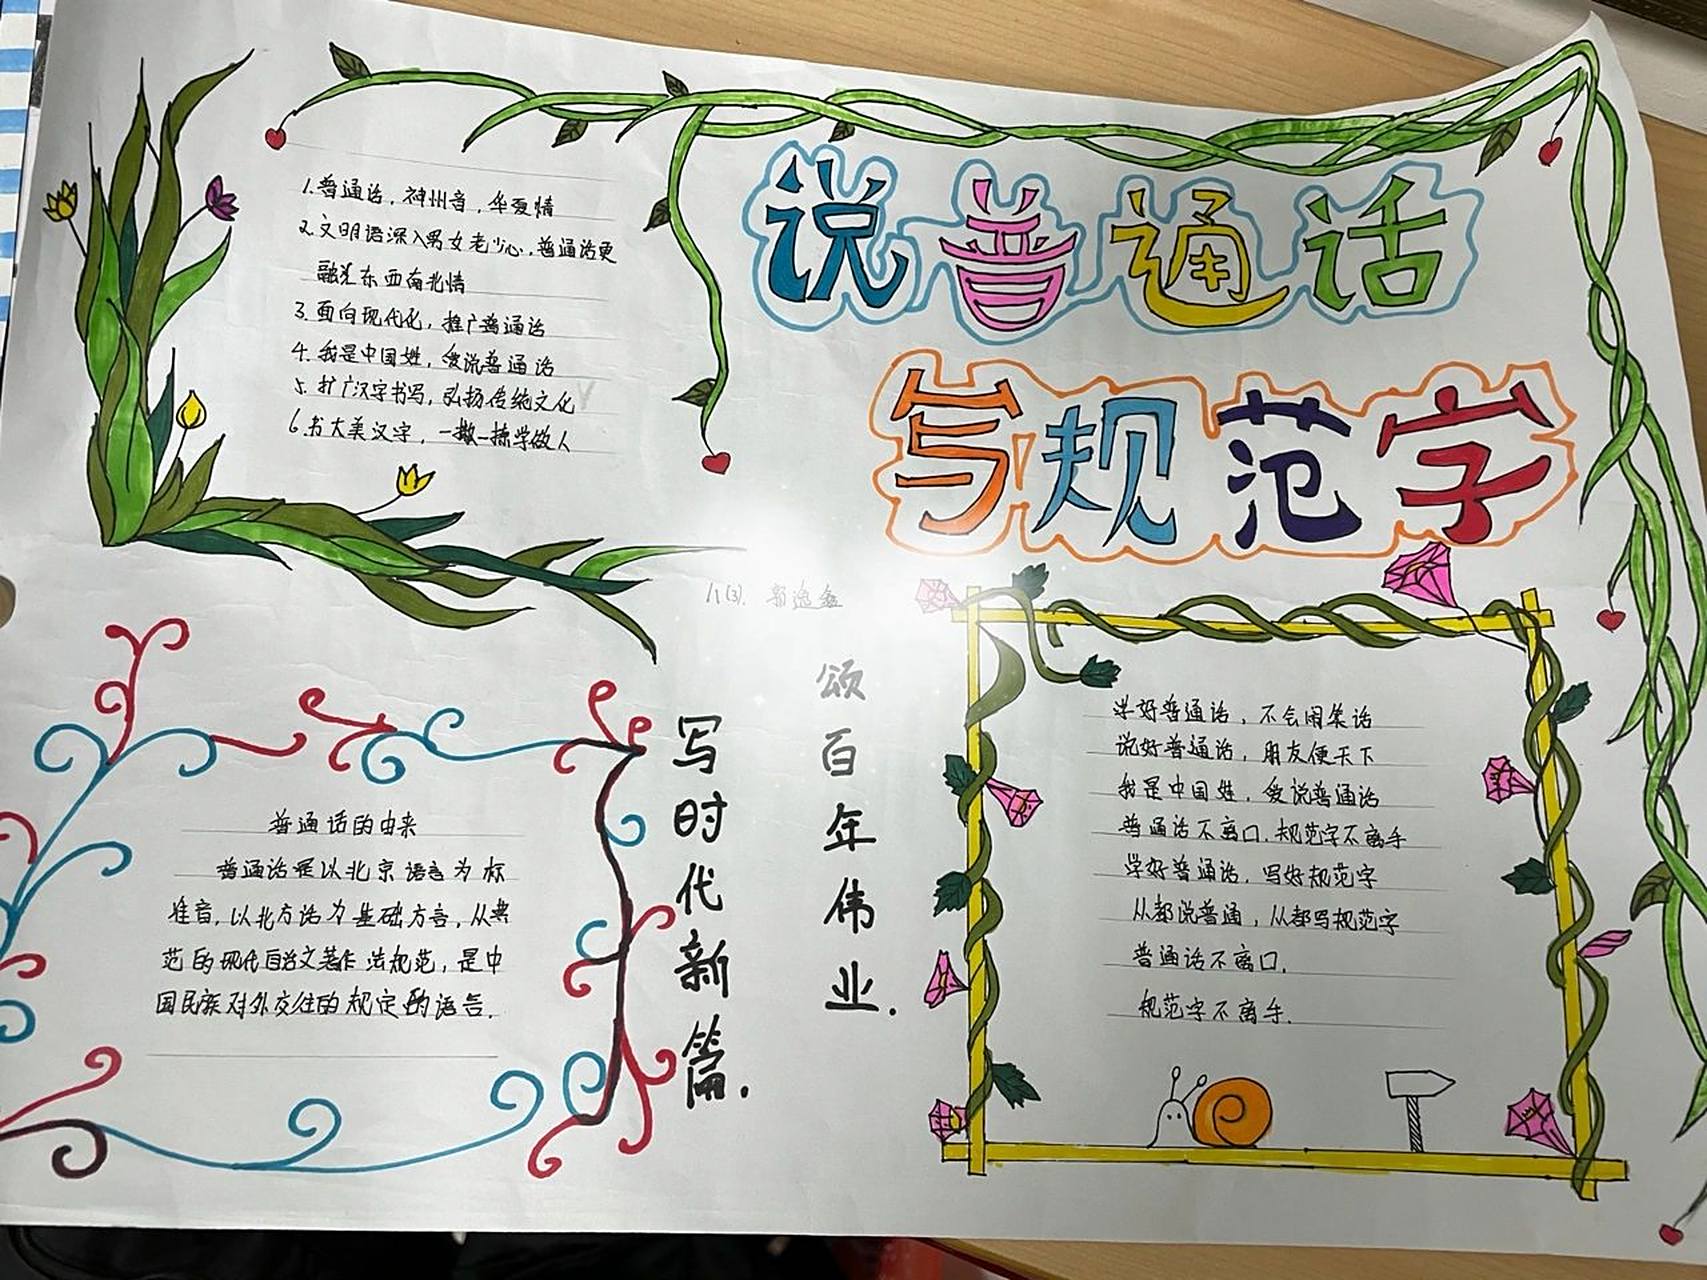 说普通话
写规范字
1.普通话，神州音，华夏情
2.文明语深入男女老少心，普通话更
融汇东西南北情
3.面向现代化，推广普通话
4.我是中国娃，爱说普通话
5.扩广汉字书写，弘扬传统文化
6.书大美汉字，一撇一捺学做人
颂百年伟业.
写时代新篇.
普通话的由来
普通话是以北京语言为标
准音，以北方话为基础方言，从典
范的现代白话文著作法规范，是中
国民族对外交往的规定的语言.
学好普通话，不会闹笑话
说好普通话，朋友便天下
我是中国娃，爱说普通话
普通话不离口.规范字不离手
学好普通话，写好规范字
从都说普通，从都写规范字
普通话不离口.
规范字不离手.